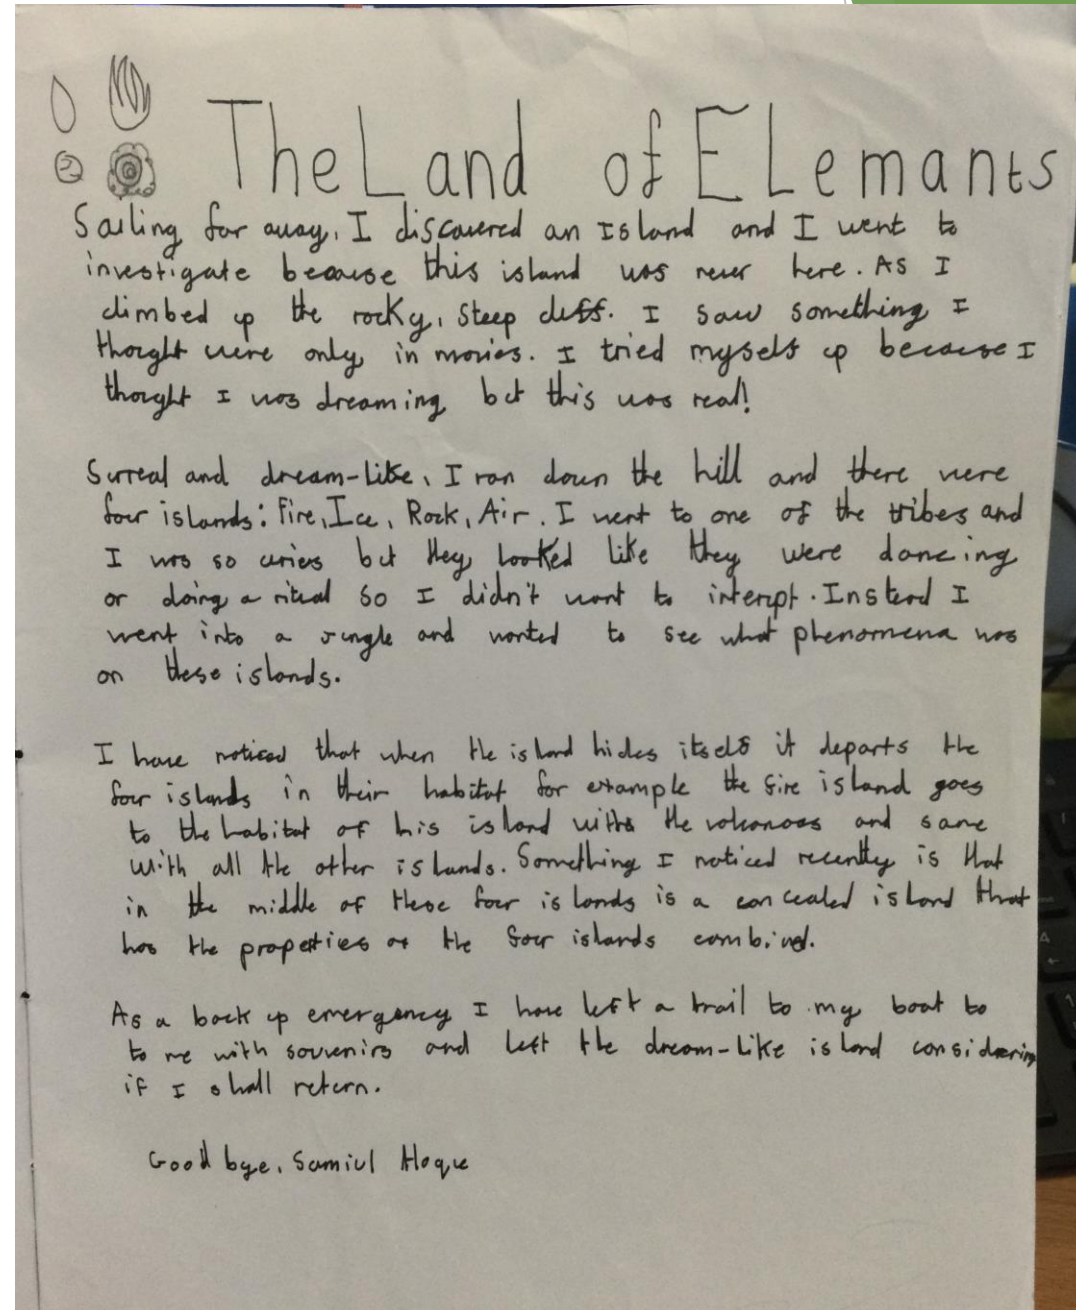 The Land of ELemants
Sailing far away, I discovered an Island and I went to
investigate because this island was never here. As I
climbed up the rocky, steep cliff. I saw something I
thought were only in movies. I tried myself up because I
thought I was dreaming but this was real!
Surreal and dream-like, I ran down the hill and there were
four islands: Fire, Ice, Rock, Air. I went to one of the tribes and
I was so curies but they looked like they were dancing
or doing a ritual so I didn't want to interupt. Instead I
went into a jungle and wanted to see what phenomena was
on these islands.
I have noticed that when the island hides itself it departs the
four islands in their habitat for example the fire island goes
to the habitat of his island with the volcanoes and same
with all the other islands. Something I noticed recently is that
in the middle of these four islands is a concealed island that
has the properties of the four islands combined.
As a back up emergency I have left a trail to my boat to
to me with souvenirs and left the dream-like island considering
if I shall return.
Good bye, Samiul Hoque